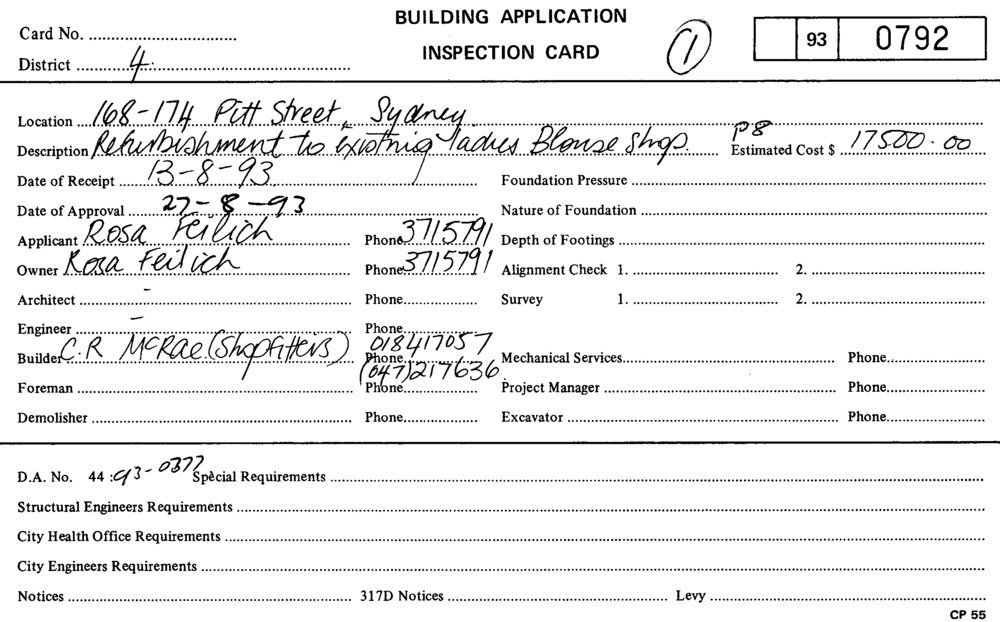 BUILDING APPLICATION
INSPECTION CARD
Card No. ..........
District 4
1
93 0792
Location 168-174 Pitt Street, Sydney
Description Refurbishment to existing ladies Blouse Shop.
P8
Estimated Cost $ 17500.00
Date of Receipt 13-8-93 Foundation Pressure ..........
Date of Approval 27-8-93 Nature of Foundation ..........
Applicant Rosa Feilich Phone 3715791 Depth of Footings ..........
Owner Rosa Feilich Phone 3715791 Alignment Check 1. .......... 2. ..........
Architect - Phone.......... Survey 1. .......... 2. ..........
Engineer - Phone..........
Builder C.R McRae (Shopfitters) Phone 018417057 Mechanical Services.......... Phone..........
(047)217636
Foreman .......... Phone.......... Project Manager .......... Phone..........
Demolisher .......... Phone.......... Excavator .......... Phone..........
D.A. No. 44 :93-0377 Special Requirements ..........
Structural Engineers Requirements ..........
City Health Office Requirements ..........
City Engineers Requirements ..........
Notices .......... 317D Notices .......... Levy ..........
CP 55